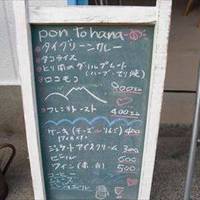 pon To hana
・タイグリーンカレー
・タコライス
・とり肉のグリルプレート
(ハーブ・てり焼)
・ロコモコ
800
・フレンチトースト
400
ケーキ(チーズ
400
アイスクリーム 300
ビール 600
ワイン(赤・白) 500
コーヒー